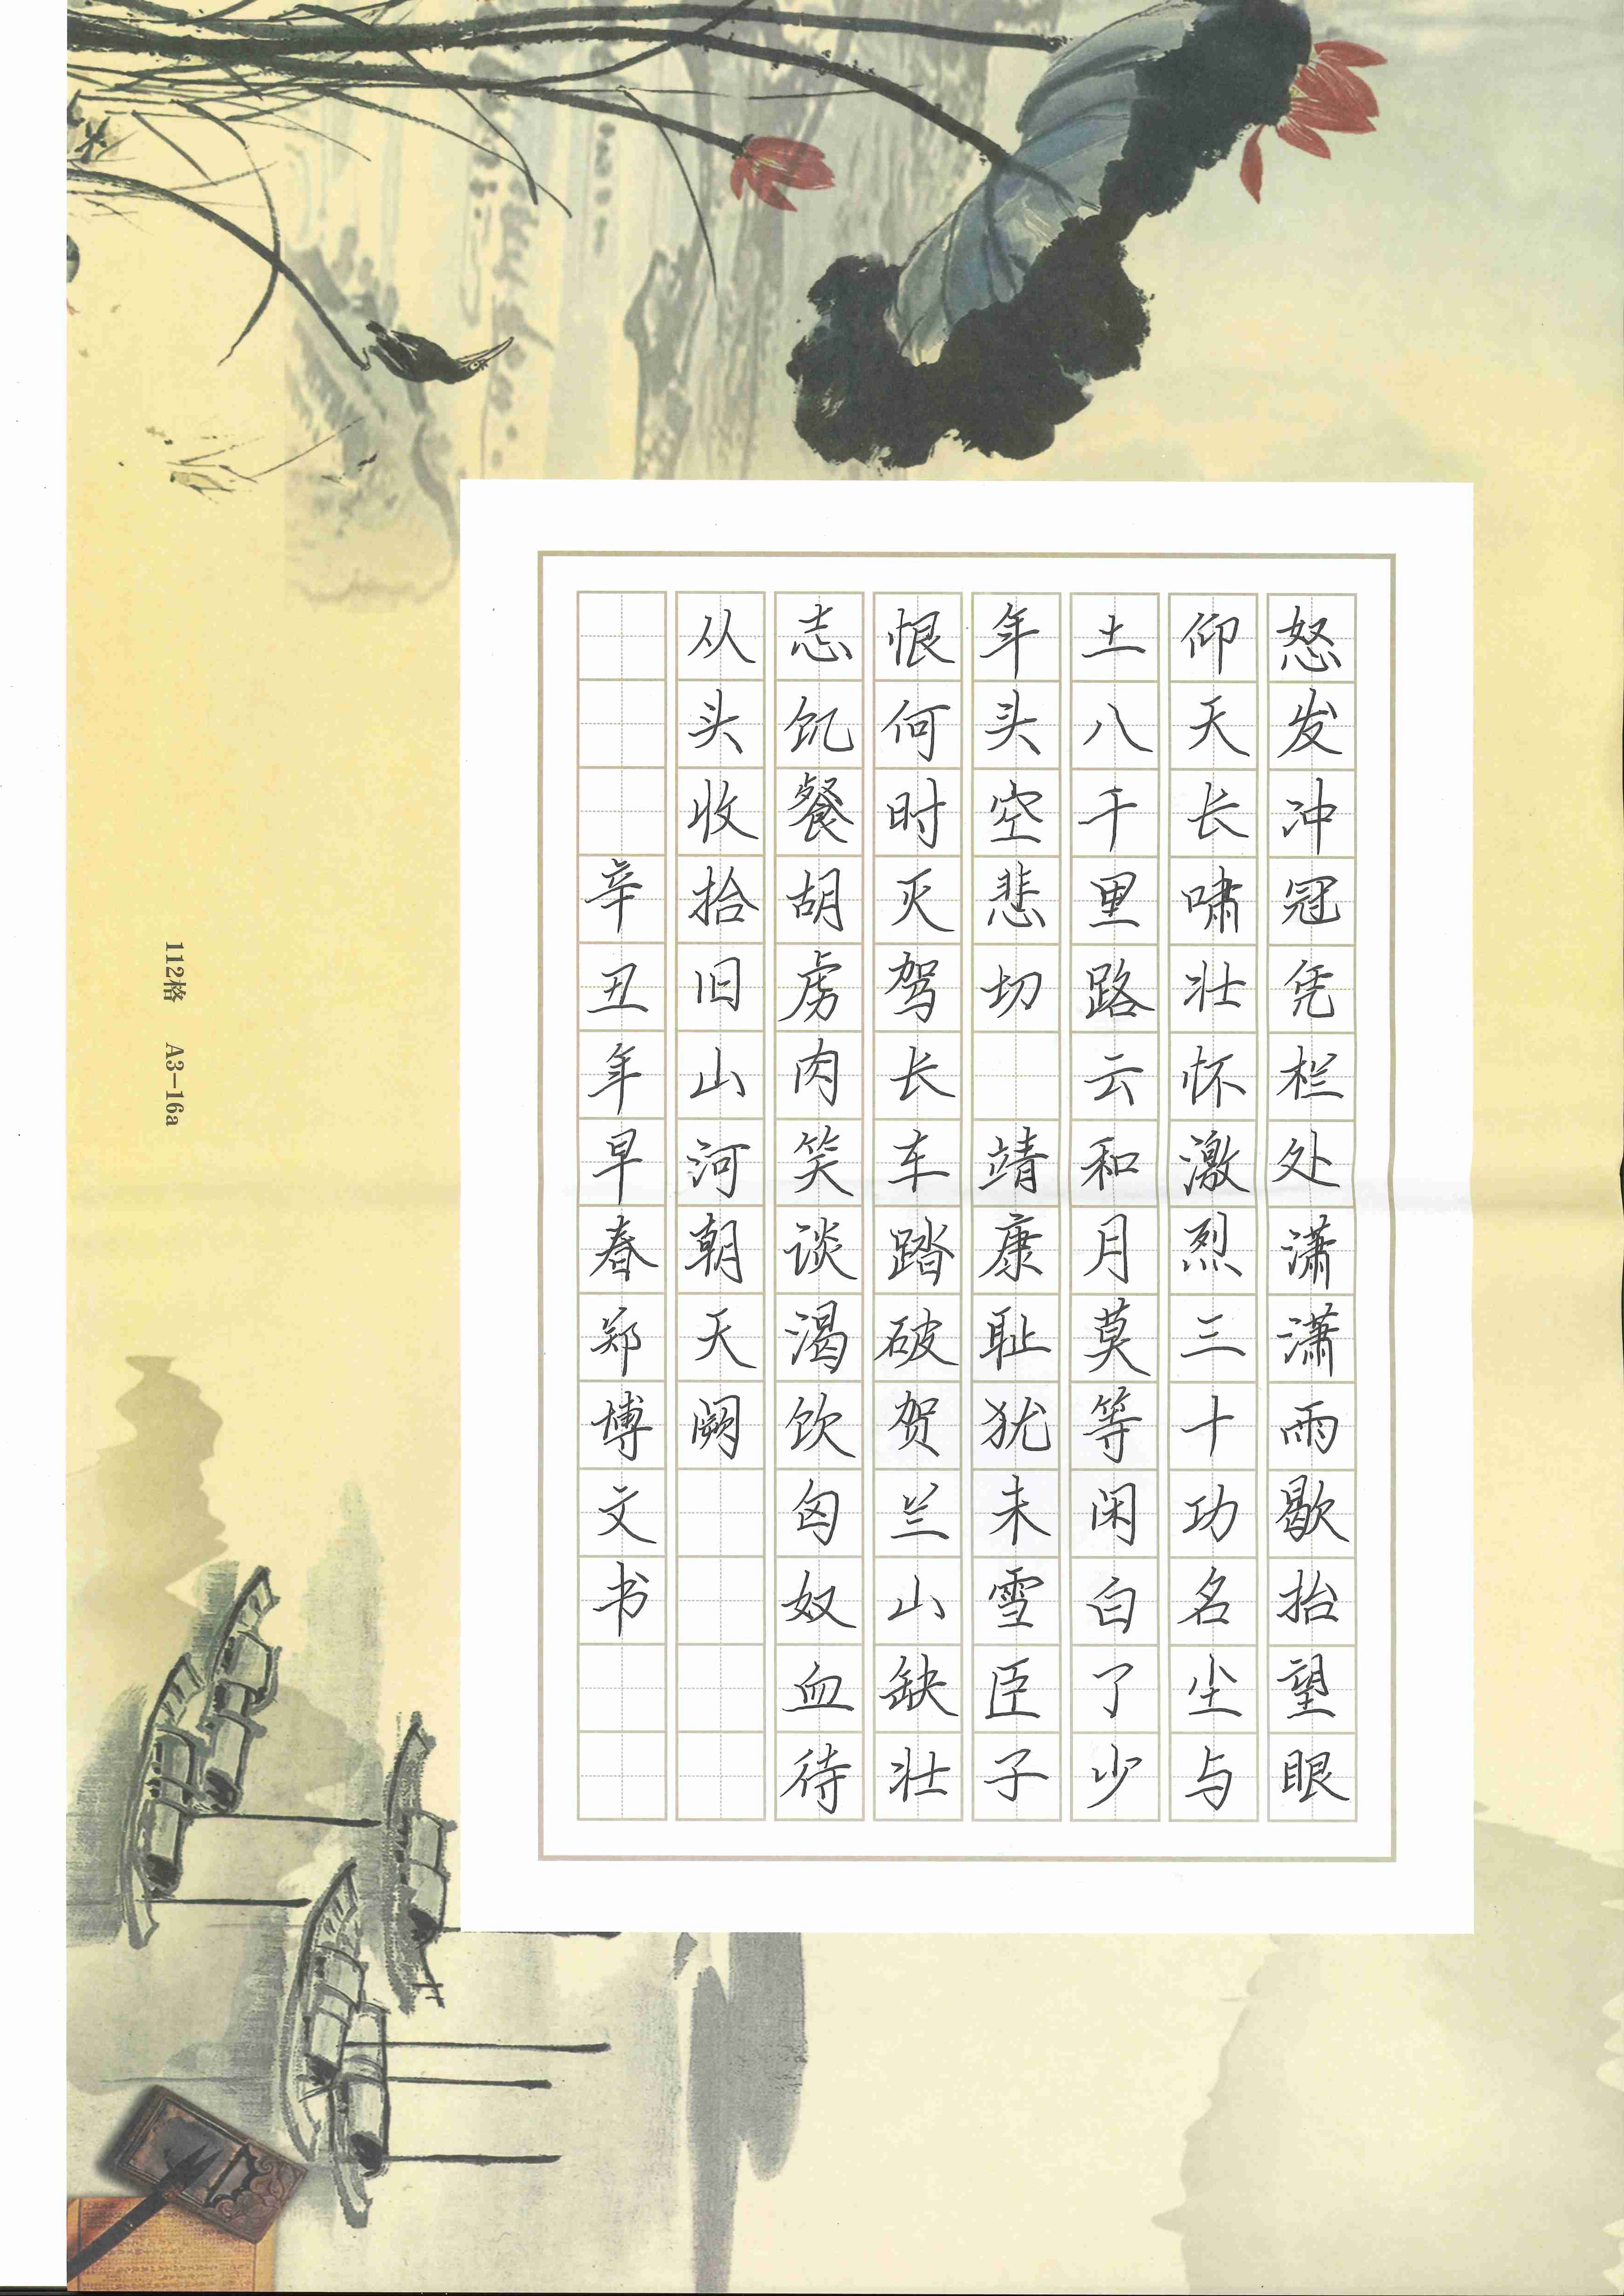 怒发冲冠凭栏处潇潇雨歇抬望眼
仰天长啸壮怀激烈三十功名尘与
土八千里路云和月莫等闲白了少
年头空悲切 靖康耻犹未雪臣子
恨何时灭驾长车踏破贺兰山缺壮
志饥餐胡虏肉笑谈渴饮匈奴血待
从头收拾旧山河朝天阙
辛丑年早春郑博文书
112格 A3-16a